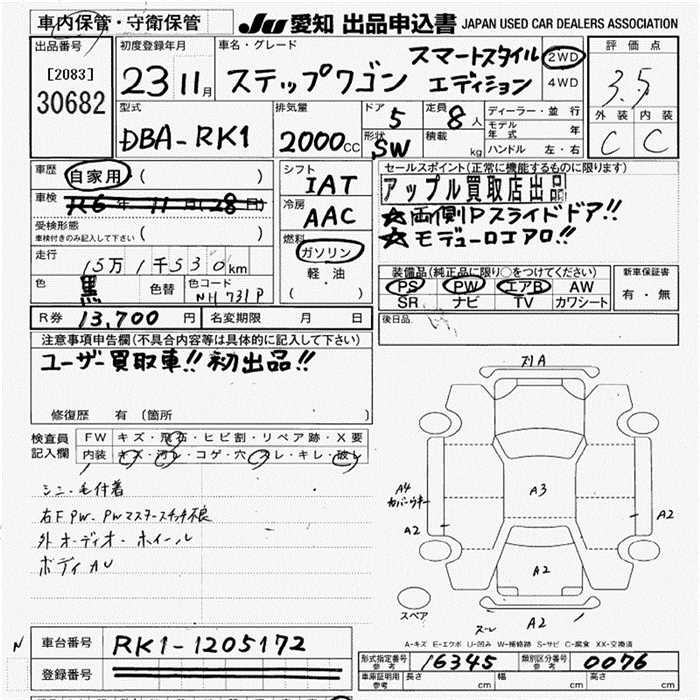 車内保管・守衛保管
JU 愛知 出品申込書 JAPAN USED CAR DEALERS ASSOCIATION
出品番号
[2083]
30682
初度登録年月
23 11月
車名・グレード
ステップワゴン スマートスタイル
エディション
2WD
4WD
評価点
3.5
外装 内装
C C
型式
DBA-RK1
排気量
2000CC
ドア 5
形状 SW
定員 8人
積載 kg
ディーラー・並行
モデル年式 年
ハンドル 左・右
車歴
自家用 ( )
車検
R6年 11月(28日)
受検形態
車検付きのみ記入して下さい ( )
走行
15万1千530km
色 黒 色替 色コード NH731P
シフト
IAT
冷房
AAC
燃料
ガソリン
軽・油
( )
セールスポイント(正常に機能するものに限ります)
アップル買取店出品
☆両側Pスライドドア!!
☆モデューロエアロ!!
装備品(純正品に限り○をつけてください)
PS PW エアB AW
SR ナビ TV カワシート
新車保証書
有・無
後日品
R券 13,700円 名変期限 月 日
注意事項申告欄(不具合内容等は具体的に記入して下さい)
ユーザー買取車!! 初出品!!
修復歴 有 (箇所
検査員
記入欄
FW キズ・飛石・ヒビ割・リペア跡・X要
内装 キズ・汚レ・コゲ・穴・スレ・キレ・破レ
シミ・毛付着
右FPW・PWマスタースイッチ不良
外オーディオ・ホイール
ボディAU
A4
カバーウキー
A2
A3
A2
A2
A2
スペア
A-キズ E-エクボ U-凹み W-補修跡 S-サビ C-腐食 XX-交換済
車台番号 RK1-1205172
登録番号
形式指定番号
参考 16345
類別区分番号
参考 0076
車庫証明用
参考 長さ cm 幅 cm 高さ cm